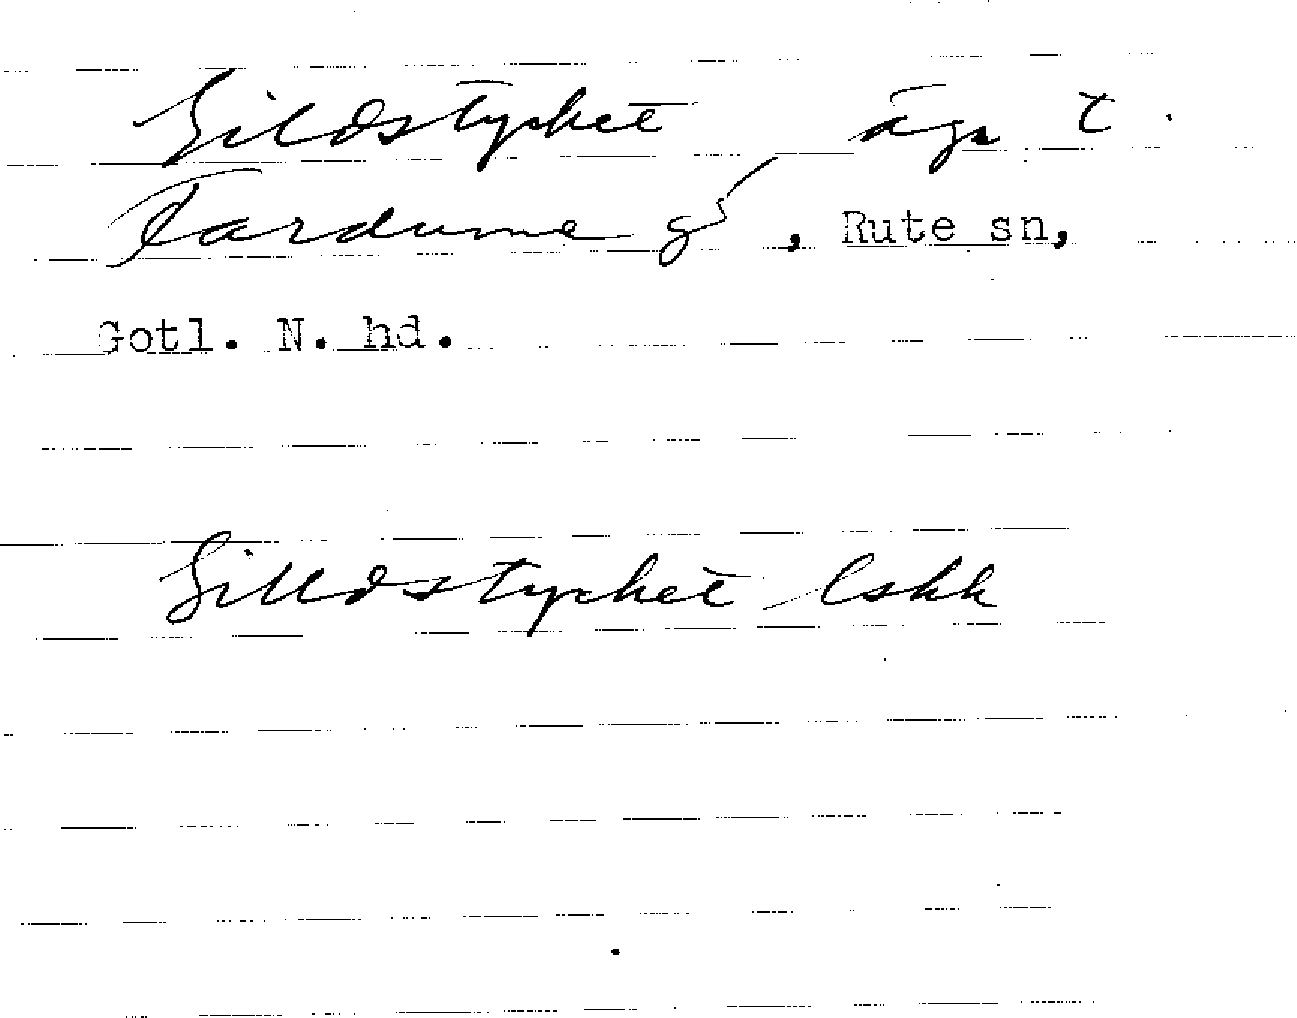 Gildstycket äga t.
Fardume gd, Rute sn,
Gotl. N. hd.
Gilldstycket lskk